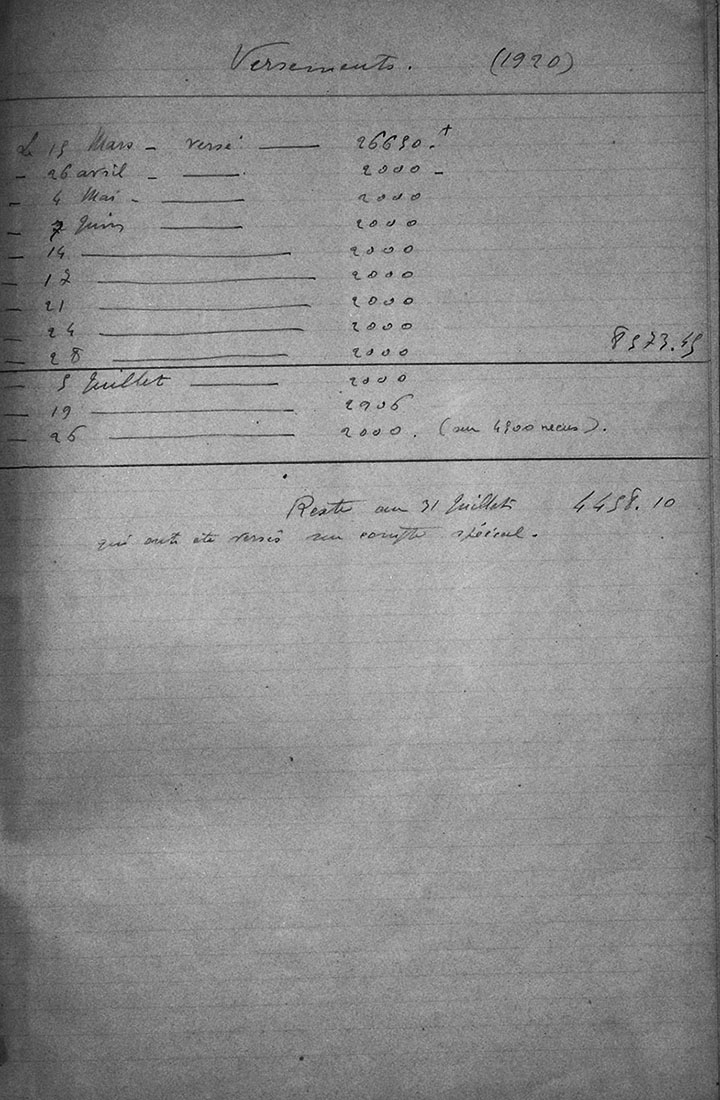 Versements. (1920)
Le 15 Mars - versé — 26650.+
- 26 avril - — 2000 -
- 4 Mai - — 2000
- 7 Juin — 2000
- 14 — 2000
- 17 — 2000
- 21 — 2000
- 24 — 2000
- 28 — 2000 8573.45
- 5 Juillet — 2000
- 19 — 2906
- 26 — 2000. (sur 4500 recus).
Reste au 31 Juillet 4458.10
qui ont ete versés sur compte spécial.